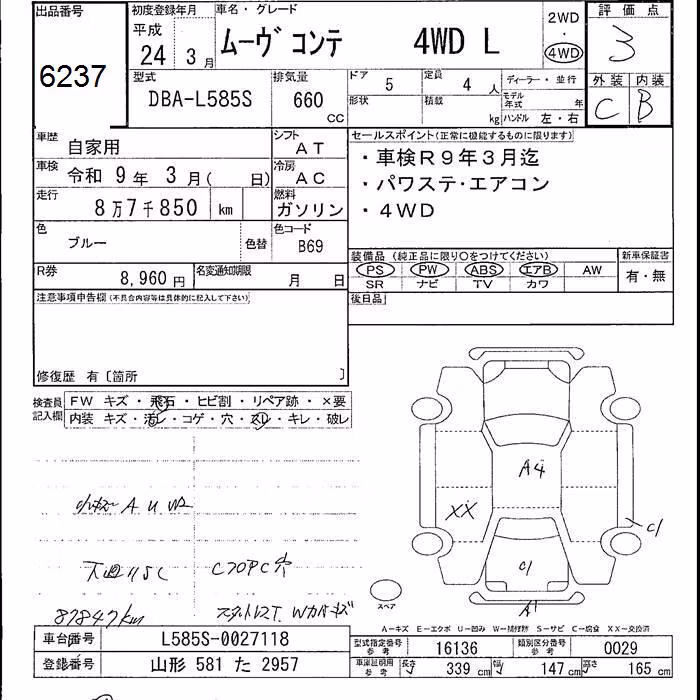 出品番号
6237
初度登録年月
平成
24 年 3 月
車名・グレード
ムーヴ コンテ 4WD L
2WD
・
4WD
評価点
3
外装 内装
C B
型式
DBA-L585S
排気量
660 CC
ドア 5
定員 4 人
形状
積載 kg
ディーラー・並行
モデル年式 年
ハンドル 左・右
車歴
自家用
シフト
AT
車検
令和 9 年 3 月( 日)
冷房
AC
走行
8万7千850 km
燃料
ガソリン
色
ブルー
色替
色コード
B69
R券
8,960 円
名変通知期限
月 日
セールスポイント(正常に機能するものに限ります)
・車検R9年3月迄
・パワステ・エアコン
・4WD
装備品 (純正品に限り○をつけてください)
PS PW ABS エアB AW
SR ナビ TV カワ
新車保証書
有・無
後日品
注意事項申告欄(不具合内容等は具体的に記入して下さい)
修復歴 有〔箇所 〕
検査員記入欄
FW キズ・飛石・ヒビ割・リペア跡・×要
内装 キズ・汚レ・コゲ・穴・スレ・キレ・破レ
小キズ A U W2
下廻りSC
87847km
A4
XX
C1
C1
A1
スペア
A-キズ E-エクボ U-凹み W-補修跡 S-サビ C-腐食 XX-交換済
車台番号
L585S-0027118
登録番号
山形 581 た 2957
型式指定番号
参考
16136
類別区分番号
参考
0029
車庫証明用
参考
長さ 339 cm
幅 147 cm
高さ 165 cm